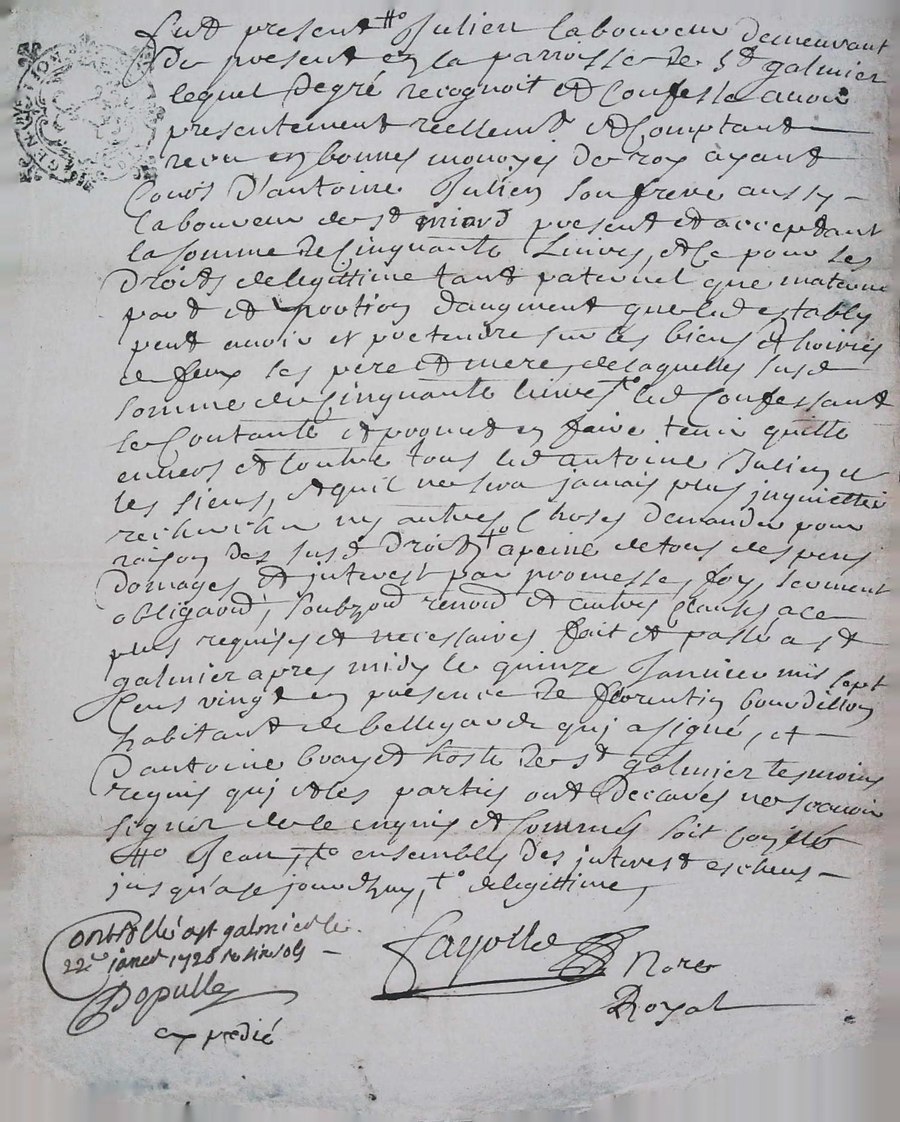 Fut present #° Julien laboureur demeurant
de present en la parroisse de St galmier
lequel degré recognoit et Confesse avoir
presentement reellemt et Comptant
receu en bonnes monoyes de roy ayant
Cours d'antoine Julien son frere aussy
laboureur de St miard present et acceptant
la somme de Cinquante Livres, et Ce pour les
Droits de legittime tant paternel que materne
part et portion daugment que led estably
peut avoir et pretendre sur les biens et hoiries
de feux ses pere et mere, de laquelles susd
somme de Cinquante livres led Confessant
se Contante et promet en faire tenir quitte
envers et Contre tous led antoine Julien et
les siens, et quil ne sera jamais plus inquietté
recherché ny autres Choses demander pour
raison des susd Droits a peine de tous despens
Domages et interest par promesse, foy, serment
obligaond, soubzond renond et autres Clauses a ce
plus requises et necessaires fait et passé a St
galmier apres midy le quinze Janvier mil sept
Cens vingt en presence de florentin bourdillon
habitant de bellegarde quj a signé, et
d'antoine hoste de St galmier tesmoins
requis quj et les parties ont Declarés ne scavoir
signer de ce enquis et sommés soit
#° Jean, t° ensembles des interest escheus
jusqu'a ce jourdhuy, t° de legittime,
Controllé a St galmier le
22e janer 1720
Fayolle Nore
Royal
expedié